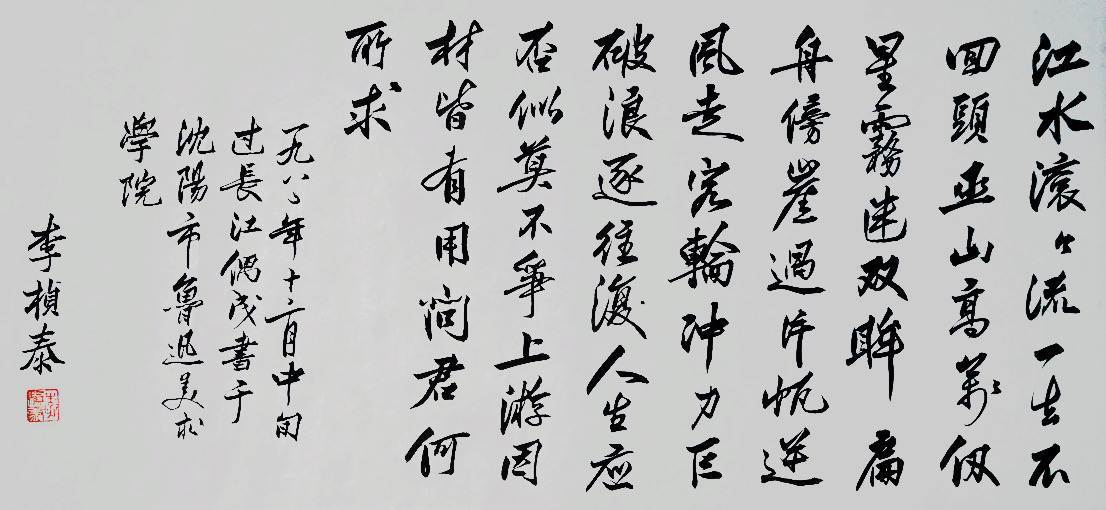 江水滚々流一去不
回頭巫山高萬仞
星霧迷双眸扁
舟傍崖過片帆逆
風走客輪冲力巨
破浪逐往復人生应
否似莫不爭上游因
材皆有用问君何
所求
一九八〇年十二月中旬
过長江偶成書于
沈陽市魯迅美术
學院
李楨泰